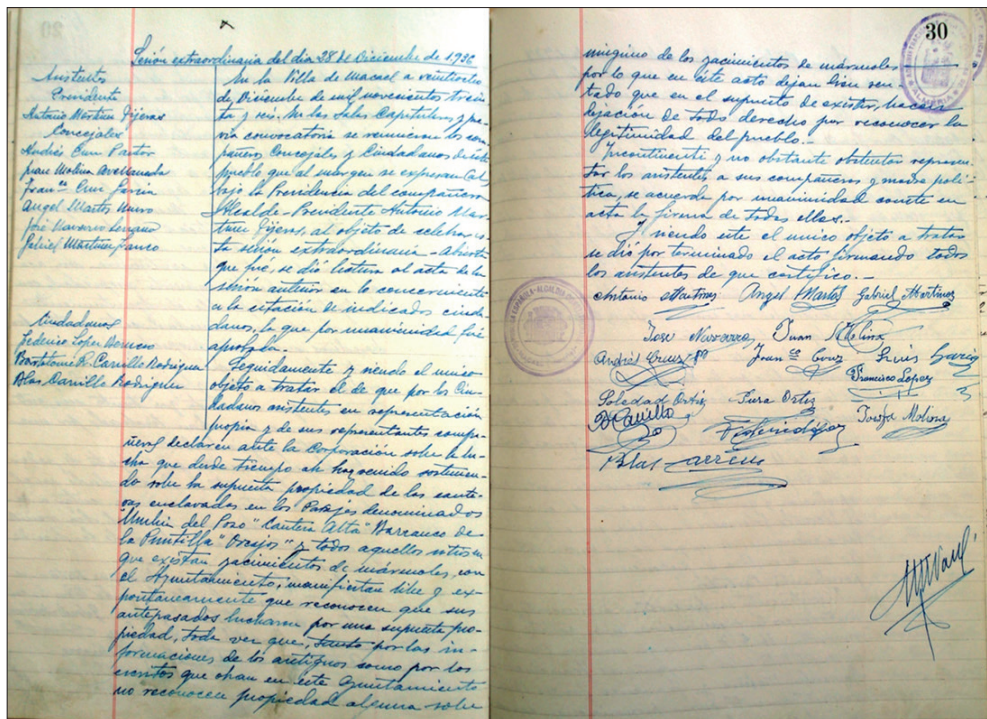 Sesión extraordinaria del día 28 de Diciembre de 1936
Asistentes
Presidente
Antonio Martínez Tijeras
Concejales
Andrés Cruz Pastor
Juan Molina Avellaneda
Franco Cruz García
Angel Martos
José Navarro
Gabriel Martínez
Ciudadanos
Federico López
Bartolomé R. Carrillo Rodríguez
Blas Carrillo Rodríguez
En la Villa de Macael a veintiocho
de Diciembre de mil novecientos trein
ta y seis. En las Salas Capitulares, y pre
via convocatoria se reunieron los com
pañeros Concejales y Ciudadanos de este
pueblo que al margen se expresan
bajo la Presidencia del compañero
Alcalde-Presidente Antonio Mar
tínez Tijeras, al objeto de celebrar es
ta sesión extraordinaria - Abierta
que fué, se dió lectura al acta de la
sesión anterior en lo concerniente
a la citación de indicados ciuda
danos, la que por unanimidad fué
aprobada.
Seguidamente y siendo el unico
objeto a tratar el de que por los Ciu
dadanos asistentes en representación
propia y de sus representantes compa
ñeros declaren ante la Corporación sobre la lu
cha que desde tiempo ah han venido sostenien
do sobre la supuesta propiedad de las cante
ras enclavadas en los Parajes denominados
Umbria del Pozo" "Cantera Alta" Barranco de
la Puntilla" "Orcajos" y todos aquellos sitios en
que existan yacimientos de mármoles, con
el Ayuntamiento; manifiestan libre y ex
pontaneamente que reconocen que sus
antepasados lucharon por una supuesta pro-
piedad, toda vez que, tanto por las in-
formaciones de los antiguos como por los
escritos que obran en este Ayuntamiento
no reconocen propiedad alguna sobre
30
ninguno de los yacimientos de mármoles
por lo que en este acto dejan bien sen
tado que en el supuesto de existir, hacen
dejación de todo derecho por reconocer la
legitimidad del pueblo.-
Incontinenti y no obstante obstentar represen
tar los asistentes a sus compañeros y madre polí-
tica, se acuerda por unanimidad conste en
acta la firma de todos ellos.-
Y siendo este el unico objeto a tratar
se dió por terminado el acto, firmando todos
los asistentes de que certifico.-
Antonio Martinez Angel Martos Gabriel Martinez
Jose Navarro Juan Molina
Andrés Cruz Pa Franco Cruz Luis Garcia
Francisco Lopez
Soledad Ortiz Pura Ortiz
B Carrillo Federico López Josefa Molina
Blas Carrillo